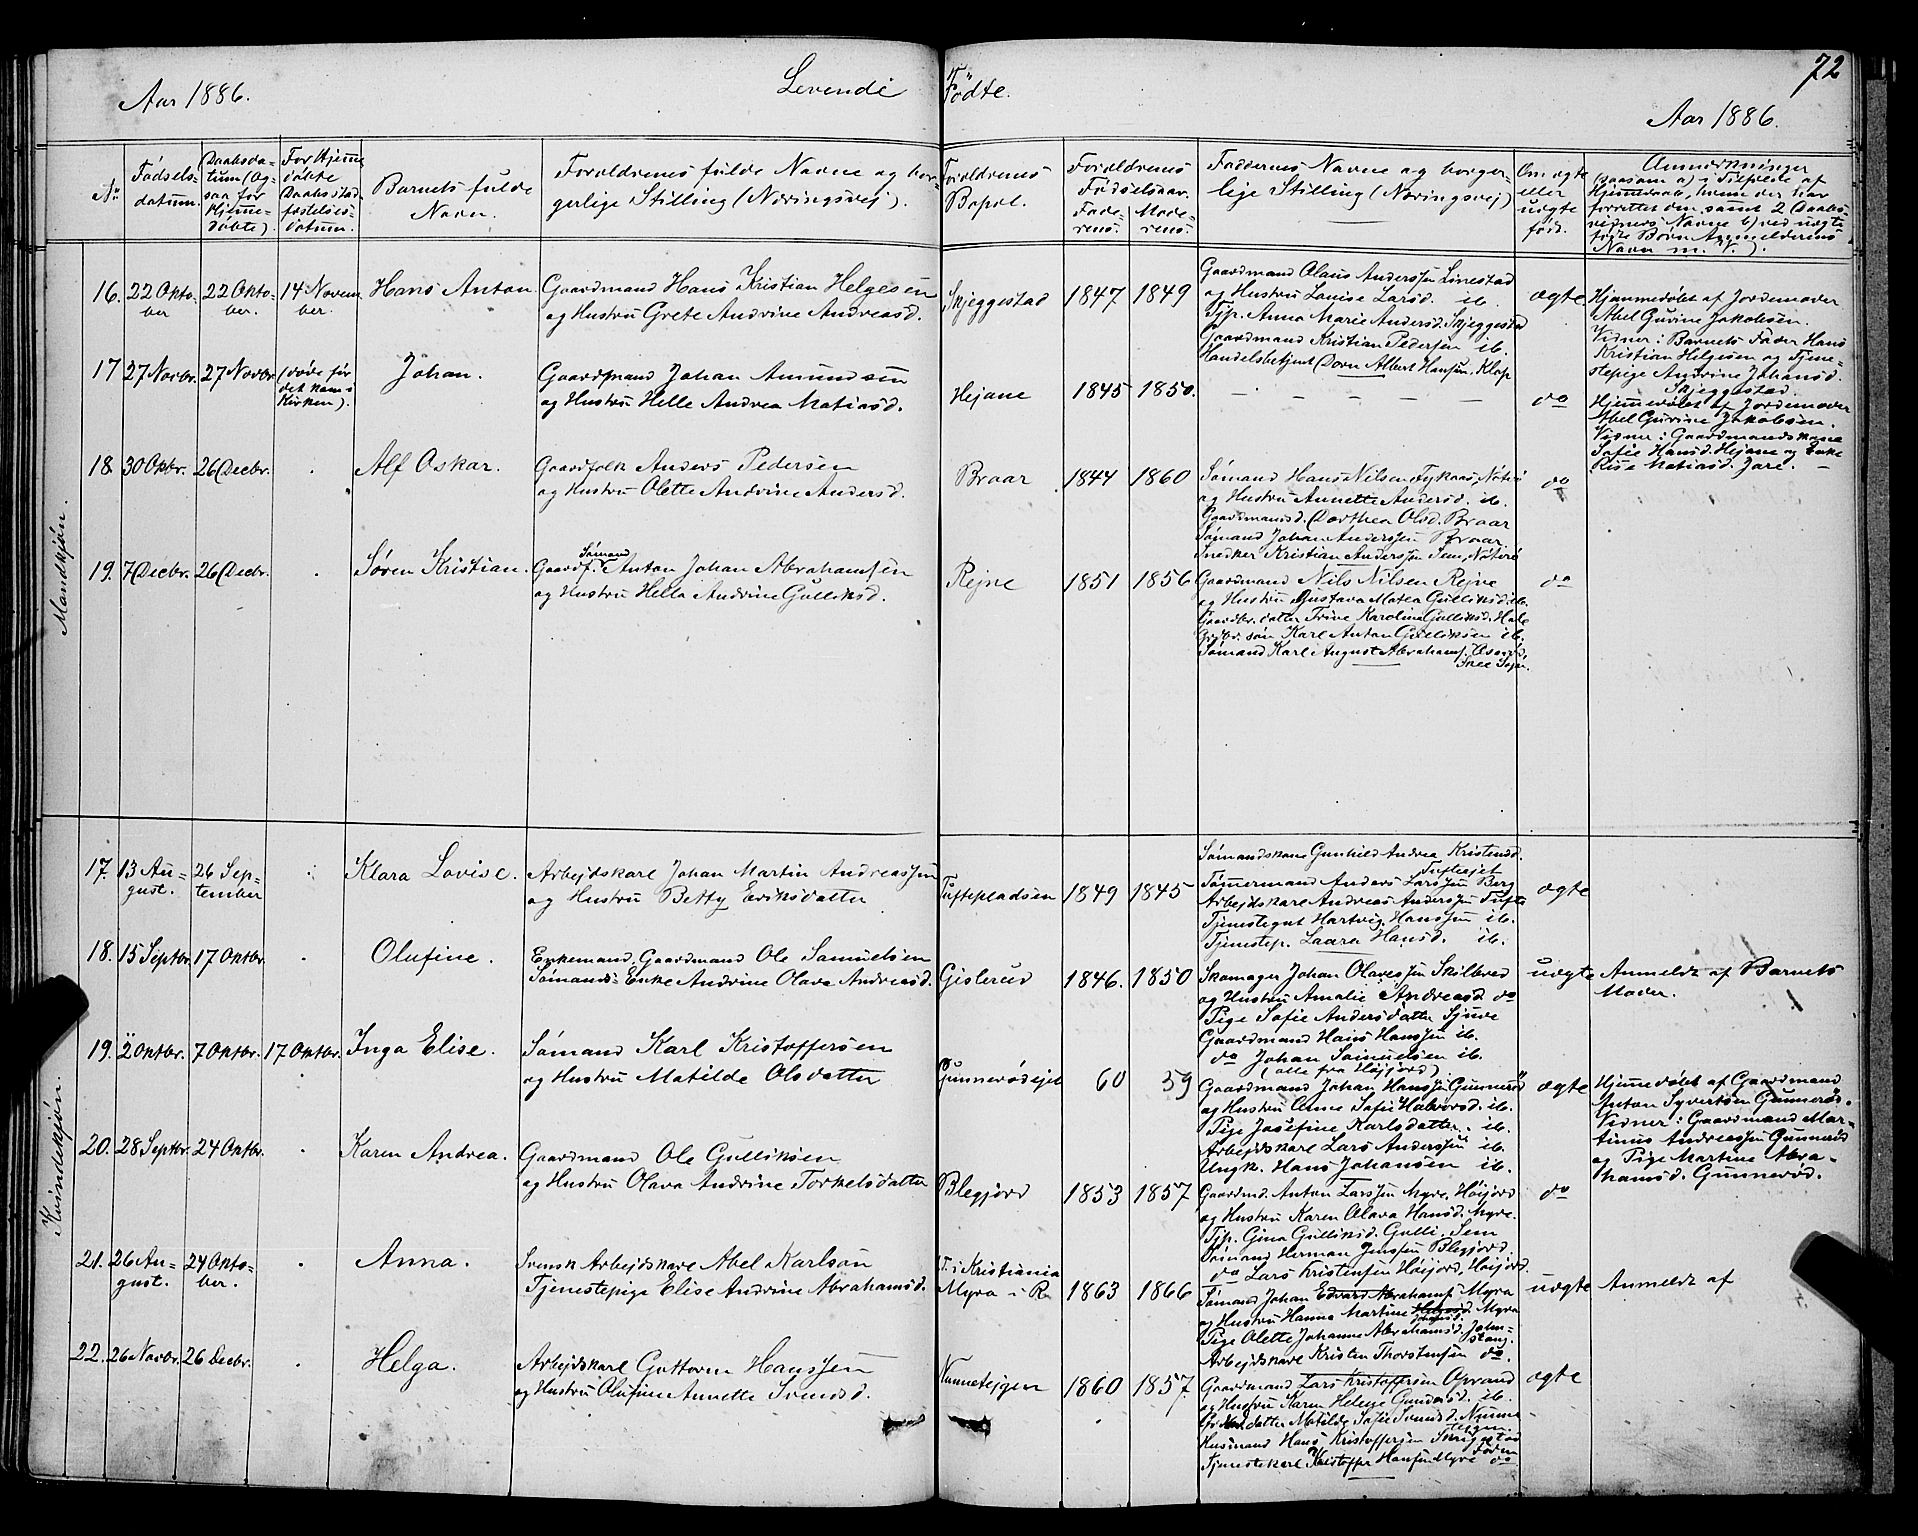 72
Aar 1886.
Levende Fødte.
Aar 1886.
No
Fødsels-
datum.
Daabsda-
tum (og-
saa for
Hjemme-
døbte).
For Hjemme
døbte
Daabsstad-
fæstelses-
datum.
Barnets fulde
Navn.
Forældrenes fulde Navne og bor-
gerlige Stilling (Næringsvej).
Forældrenes
Bopæl.
Forældrenes
Fødselsaar.
Fade-
rens.
Mode-
rens.
Faddernes Navne og borger-
lige Stilling (Næringsvej)
Om ægte
eller
uægte
født.
Anmerkninger
(saasom a) i Tilfælde af
Hjemmedaab, hvem der har
forrettet den samt 2 Daabs-
vidners Navne b) ved uægte
fødte Børn Anmelderens
Navn m. V.).
Mandkjøn.
16. 22 Okto-
ber
22 Okto-
ber.
14 Novem
ber.
Hans Anton
Gaardmand Hans Kristian Helgesen
og Hustru Grete Andrine Andreasd.
Skjeggestad
1847 1849
Gaardmand Olaus Anderssen Linestad
og Hustru Louise Larsd. ib.
Tjp. Anna Marie Andersd. Skjeggestad
Gaardmand Kristian Pedersen ib.
Handelsbetjent Dorn Albert Hansen, Klop
ægte
Hjemmedøbt af Jordemoder
Abel Gurine Jakobsen.
Vidner: Barnets Fader Hans
Kristian Helgesen og Tjene-
stepige Andrine Johansd.
Skjeggestad.
17 27 Novbr. 27 Novbr. (døde før
det kom i
Kirken).
Johan.
Gaardmand Johan Amundsen
og Hustru Helle Andrea Matiasd.
Hejane
1845 1850.
do
Hjemmedøbt af Jordemoder
Abel Gurine Jakobsen.
Vidner: Gaardmandskone
Sofie Hansd. Hejane og Enke
Rise Matiasd. Jare.
18. 30 Oktbr. 26 Decbr.
Alf Oskar.
Gaardfolk Anders Pedersen
og Hustru Olette Andrine Andersd.
Braar
1844 1860
Sømand Hans Nilsen Nøtterø
og Hustru Annette Andersd. ib.
Gaardmansd. Dorthea Olsd. Braar
Sømand Johan Anderssen Braar
Snedker Kristian Anderssen Sem, Nøtterø
do
19. 7 Decbr. 26 Decbr.
Søren Kristian.
Sømand
Gaardf. Anton Johan Abrahamsen
og Hustru Hella Andrine Gulliksd.
Rejne
1851 1856
Gaardmand Nils Nilsen Rejne
og Hustru Gustava Matea Gulliksd. ib.
Gaardbr. datter Trine Karoline Gulliksd. Hole
Grdbr. søn Karl Anton Gulliksen ib.
Sømand Karl August Abrahams.
do
Kvindekjøn.
17. 13 Au-
gust.
26 Sep-
tember
Klara Lovise.
Arbejdskarl Johan Martin Andreassen
og Hustru Betty Eriksdatter
Tuftepladsen
1849 1845
Sømandskone Gunhild Andrea Kristensd.
Tufteejet
Tømmermand Anders Larssen Berg
Arbejdskarl Andreas Anderssen Tufte
Tjenestegut Hartvig Hanssen ib.
Tjenestep. Laura Hansd. ib.
ægte
18. 15 Septbr. 17 Oktbr.
Olufine.
Enkemand, Gaardmand Ole Samuelsen
Sømands-Enke Andrine Olava Andreasd.
Gislerud
1846. 1850
Skomager Johan Olavessen Skilbred
og Hustru Amalie Andreasd do
Pige Sofie Andersdatter Sjuve
Gaardmand Hans Hanssen ib.
do Johan Samuelsen ib.
(alle fra Høijord)
uægte
Anmeldt af Barnets
Moder.
19. 2 Oktbr. 7 Oktbr. 17 Oktbr.
Inga Elise.
Sømand Karl Kristoffersen
og Hustru Matilde Olsdatter
Gunnerødejet
60 59
Gaardmand Johan Hanssen Gunnerød
og Hustru Anne Sofie Halvorsd. ib.
Pige Josefine Karlsdatter. ib.
Arbejdskarl Lars Anderssen ib.
Ungk. Hans Johansen ib.
ægte
Hjemmedøbt af Gaardmand
Anton Syvertsen Gunnerød.
Vidner: Gaardmand Mar-
tinus Andreassen Gunnerød
og Pige Martine Abra-
hamsd. Gunnerød.
20. 28 Septbr. 24 Oktbr.
Karen Andrea.
Gaardmand Ole Gulliksen
og Hustru Olava Andrine Torkelsdatter
Blegjord
1853 1857
Gaardmd. Anton Larssen Myre, Høijord
og Hustru Karen Olava Hansd. Myre.
Tjp. Gina Gulliksd. Gulli, Sem
Sømand Herman Jenssen Blegjord.
do Lars Kristensen Høijord, Høijord.
do
21. 26 Au-
gust.
24 Okto-
ber.
Anna.
Svensk Arbejdskarl Abel Karlson
Tjenestepige Elise Andrine Abrahamsd.
F. i Kristiania
Myra i R
1863 1866
Sømand Johan Edvard Abrahams. Myra
og Hustru Hanna Martine Johansd. Myra
Pige Olette Johanne Abrahamsd. John-
stang.
Arbejdskarl Kristen Thorstensen do.
uægte
Anmeldt af
22. 26 Novbr. 26 Decbr.
Helga.
Arbejdskarl Guttorm Hanssen
og Hustru Olufine Annette Svendsd.
1860 1857.
Gaardmand Lars Kristoffersen Oprand
og Hustru Karen Helene Gundersd. ib.
datter Matilde Sofie Svendsd.
Husmand Hans Kristoffersen
Tjenestekarl Kristoffer Hansen Myre do
ægte